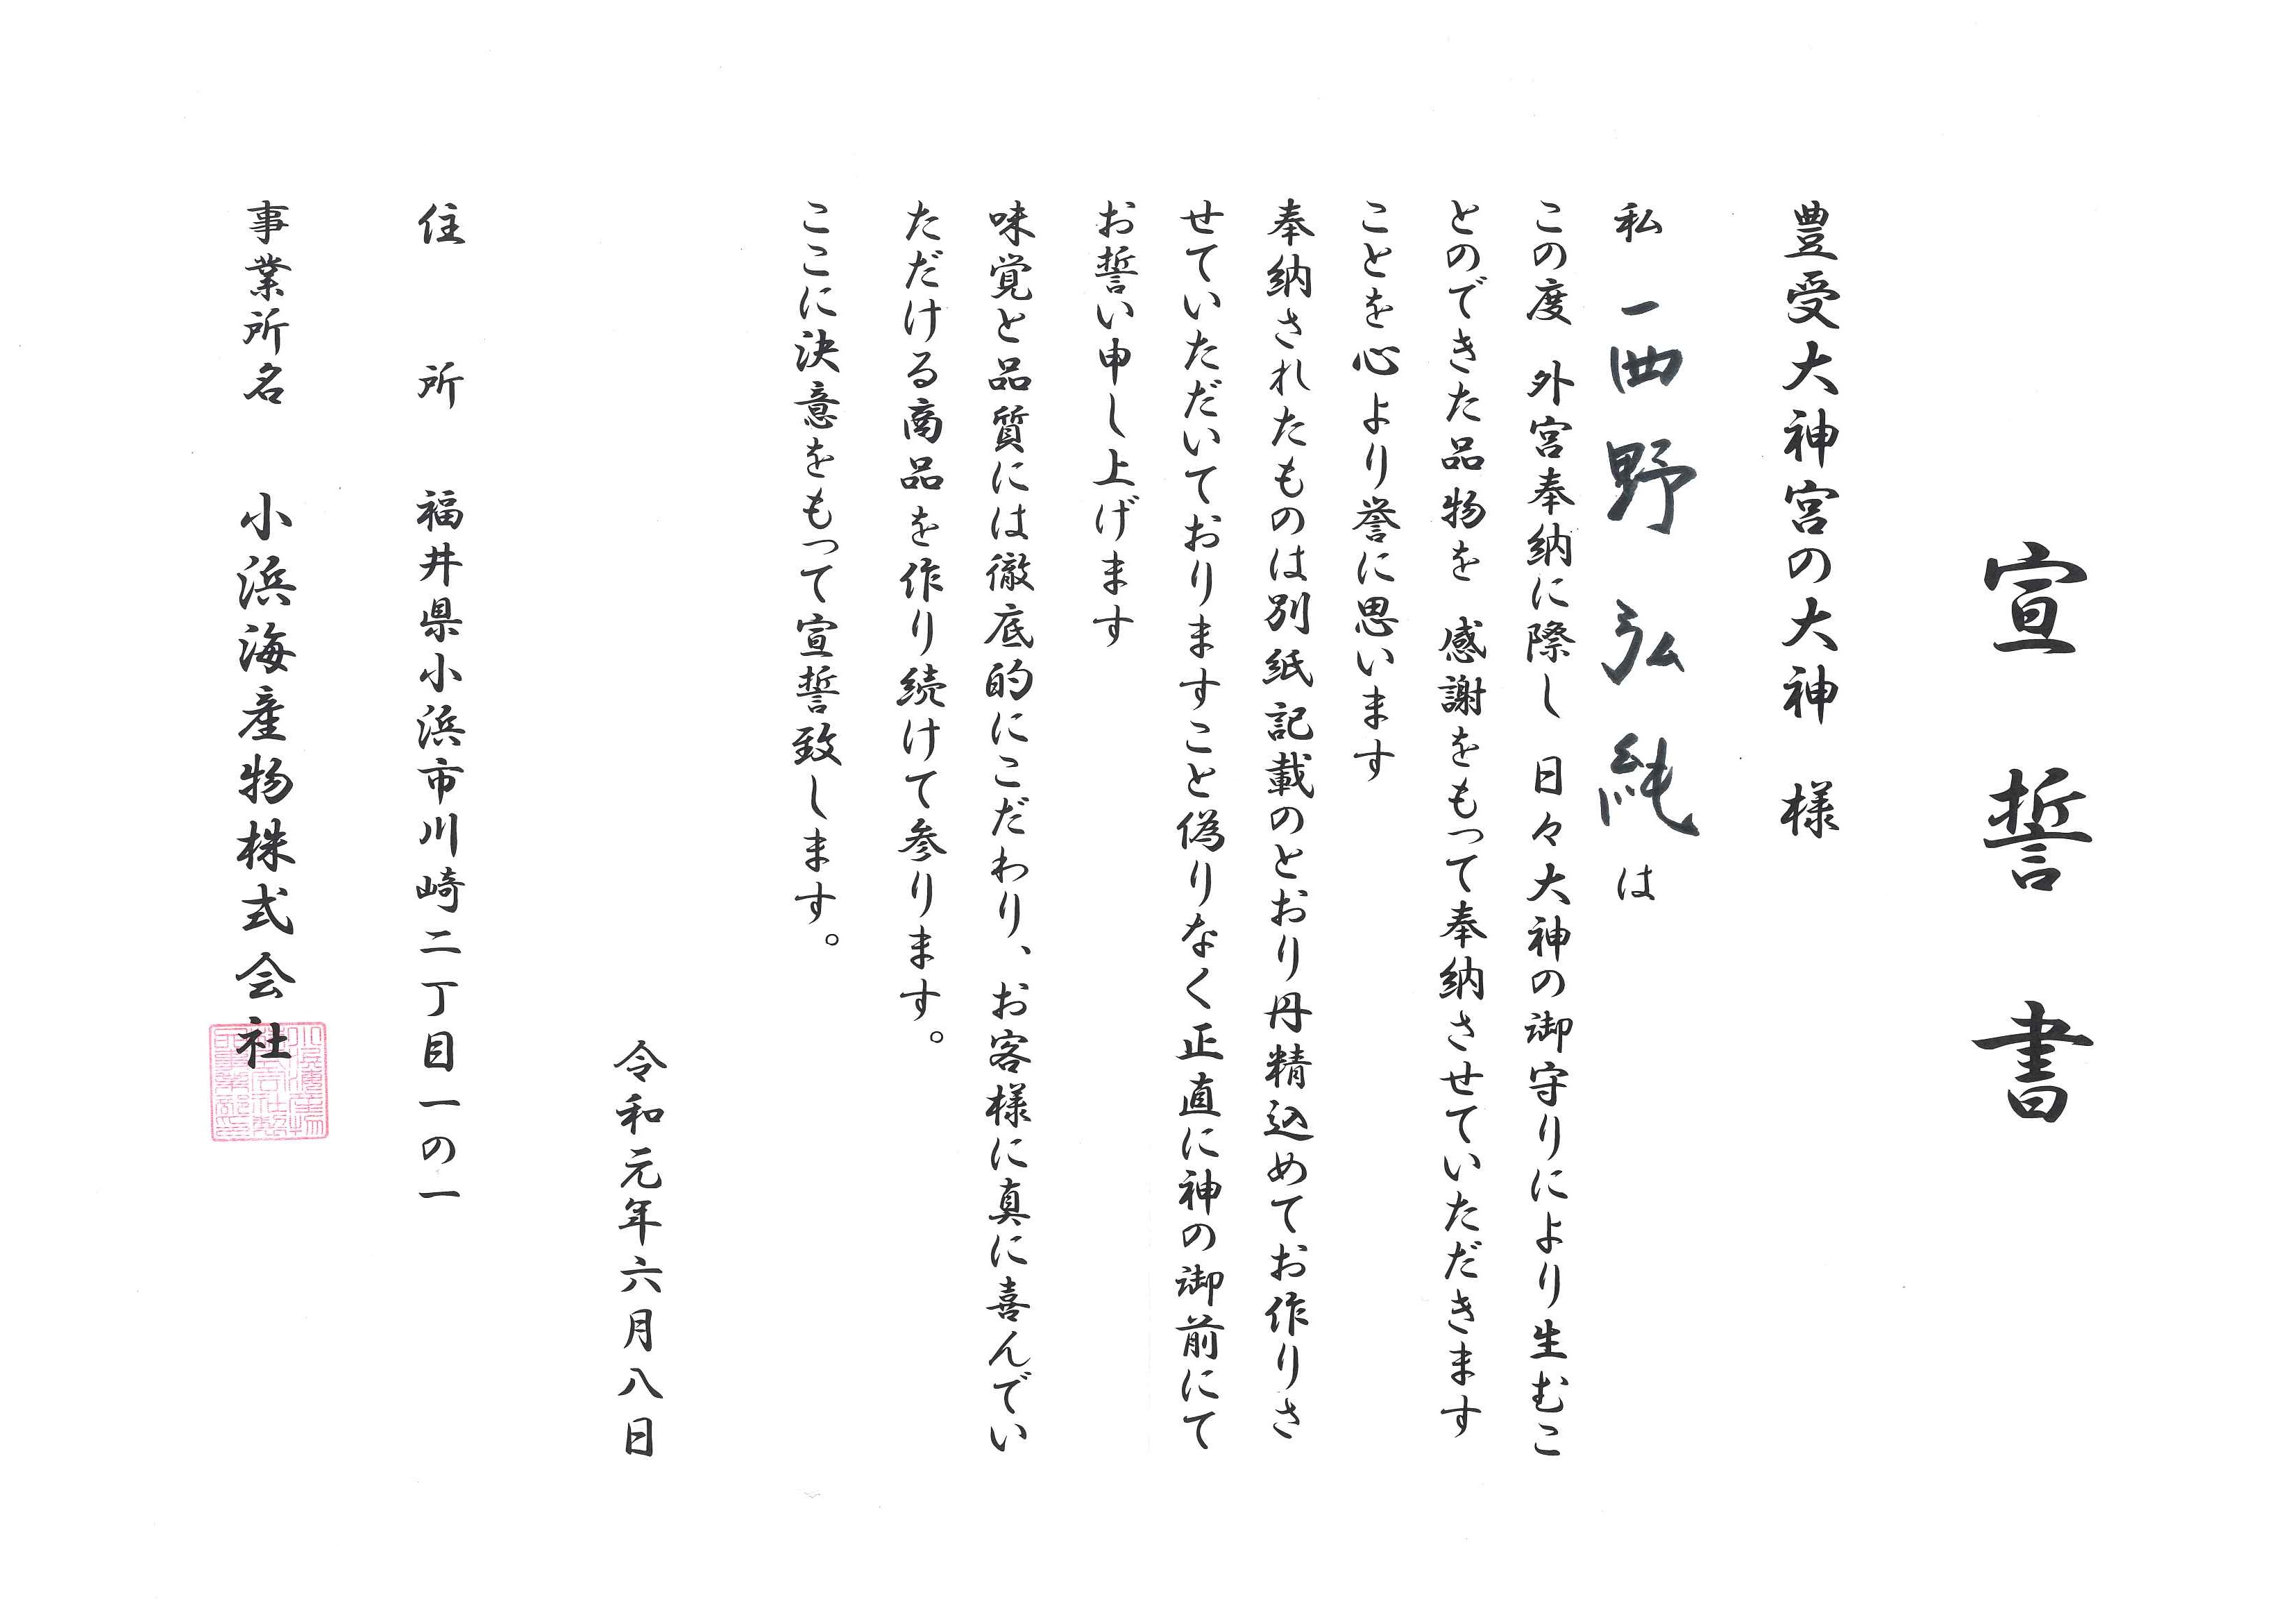 宣誓書
豊受大神宮の大神　様
私　西野弘純　は
この度　外宮奉納に際し　日々大神の御守りにより生むこ
とのできた品物を　感謝をもって奉納させていただきます
ことを心より誉に思います
奉納されたものは別紙記載のとおり丹精込めてお作りさ
せていただいておりますこと偽りなく正直に神の御前にて
お誓い申し上げます
味覚と品質には徹底的にこだわり、お客様に真に喜んでい
ただける商品を作り続けて参ります。
ここに決意をもって宣誓致します。
令和元年六月八日
住　所　福井県小浜市川崎二丁目一の一
事業所名　小浜海産物株式会社